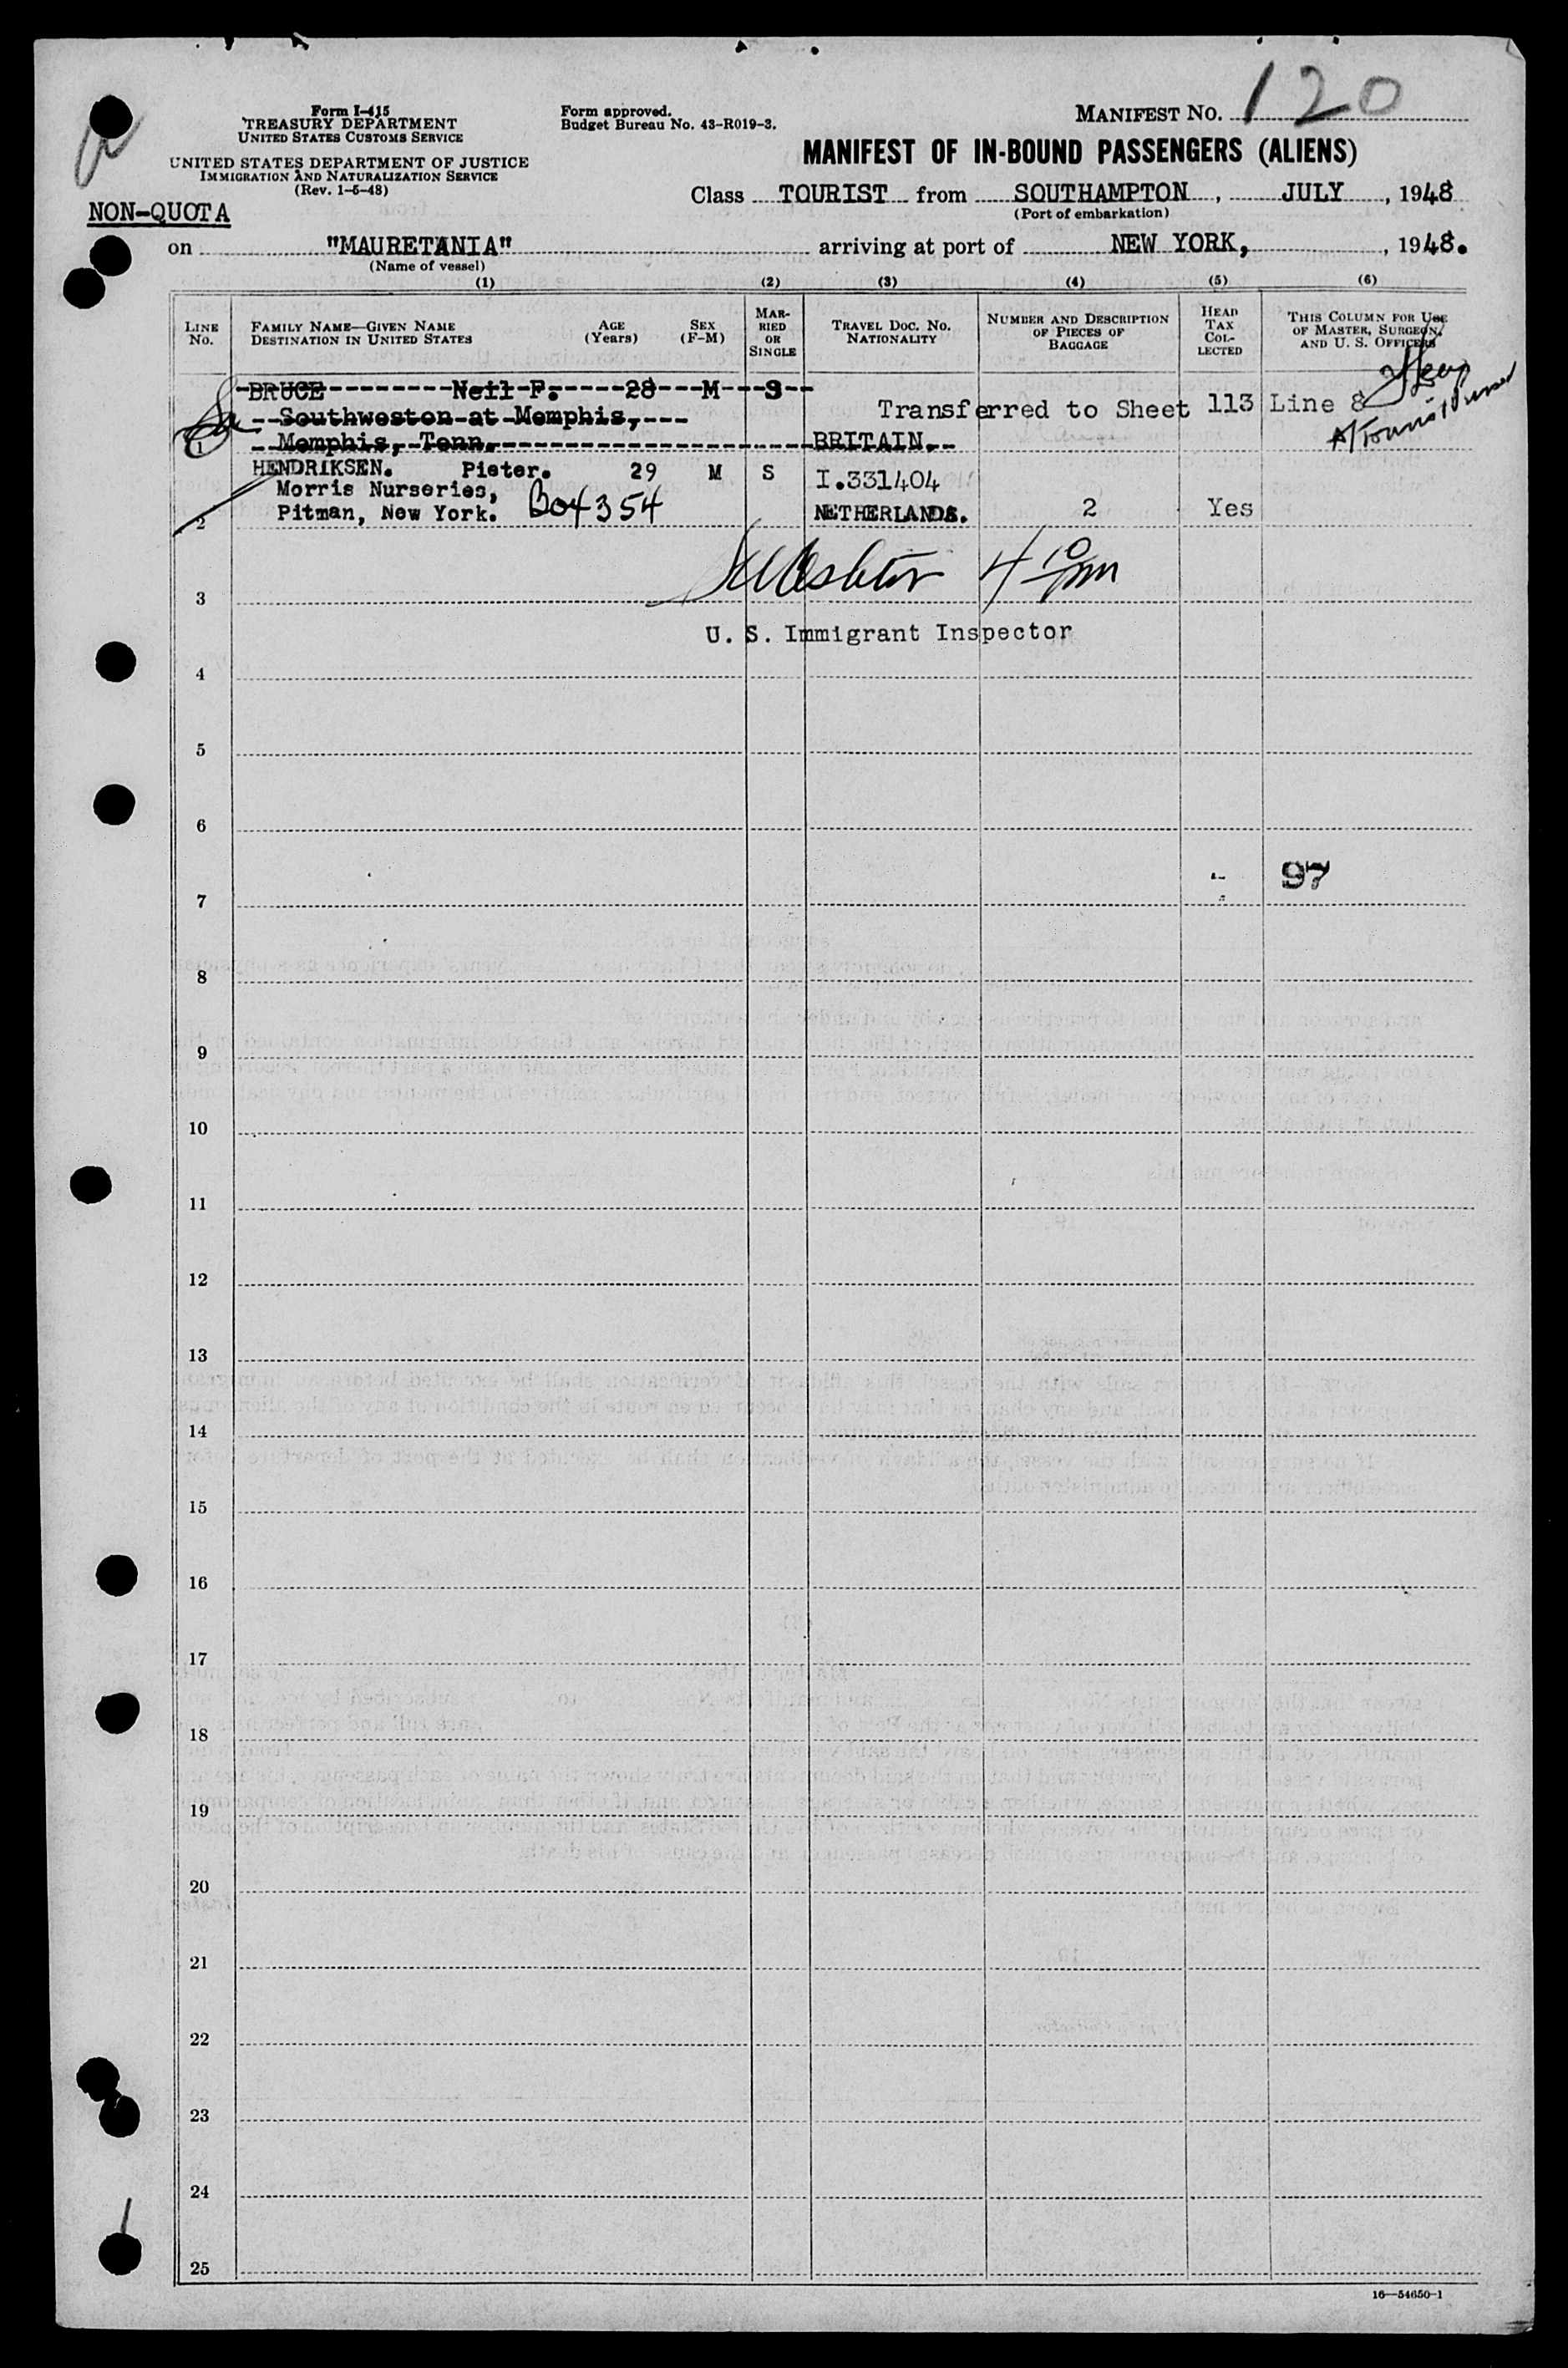 120
Form I-415
TREASURY DEPARTMENT
UNITED STATES CUSTOMS SERVICE
UNITED STATES DEPARTMENT OF JUSTICE
IMMIGRATION AND NATURALIZATION SERVICE
(Rev. 1-5-48)
Form approved.
Budget Bureau No. 43-R019-3.
MANIFEST NO.
MANIFEST OF IN-BOUND PASSENGERS (ALIENS)
Class TOURIST from SOUTHAMPTON, JULY, 1948
(Port of embarkation)
NON-QUOTA
on "MAURETANIA" arriving at port of NEW YORK, , 1948.
(Name of vessel)
(1) (2) (3) (4) (5) (6)
LINE No.
FAMILY NAME—GIVEN NAME
DESTINATION IN UNITED STATES
AGE (Years)
SEX (F-M)
MARRIED OR SINGLE
TRAVEL DOC. NO. NATIONALITY
NUMBER AND DESCRIPTION OF PIECES OF BAGGAGE
HEAD TAX COLLECTED
THIS COLUMN FOR USE OF MASTER, SURGEON, AND U. S. OFFICERS
BRUCE Neil P. 28 M S
Southweston at Memphis,
Transferred to Sheet 113 Line 8
1 Memphis, Tenn. BRITAIN.
HENDRIKSEN. Pieter. 29 M S I.331404
Morris Nurseries,
2 Pitman, New York. Box 354 NETHERLANDS. 2 Yes
4 10 pm
3
U. S. Immigrant Inspector
4
5
6
97
7
8
9
10
11
12
13
14
15
16
17
18
19
20
21
22
23
24
25
16—54650-1